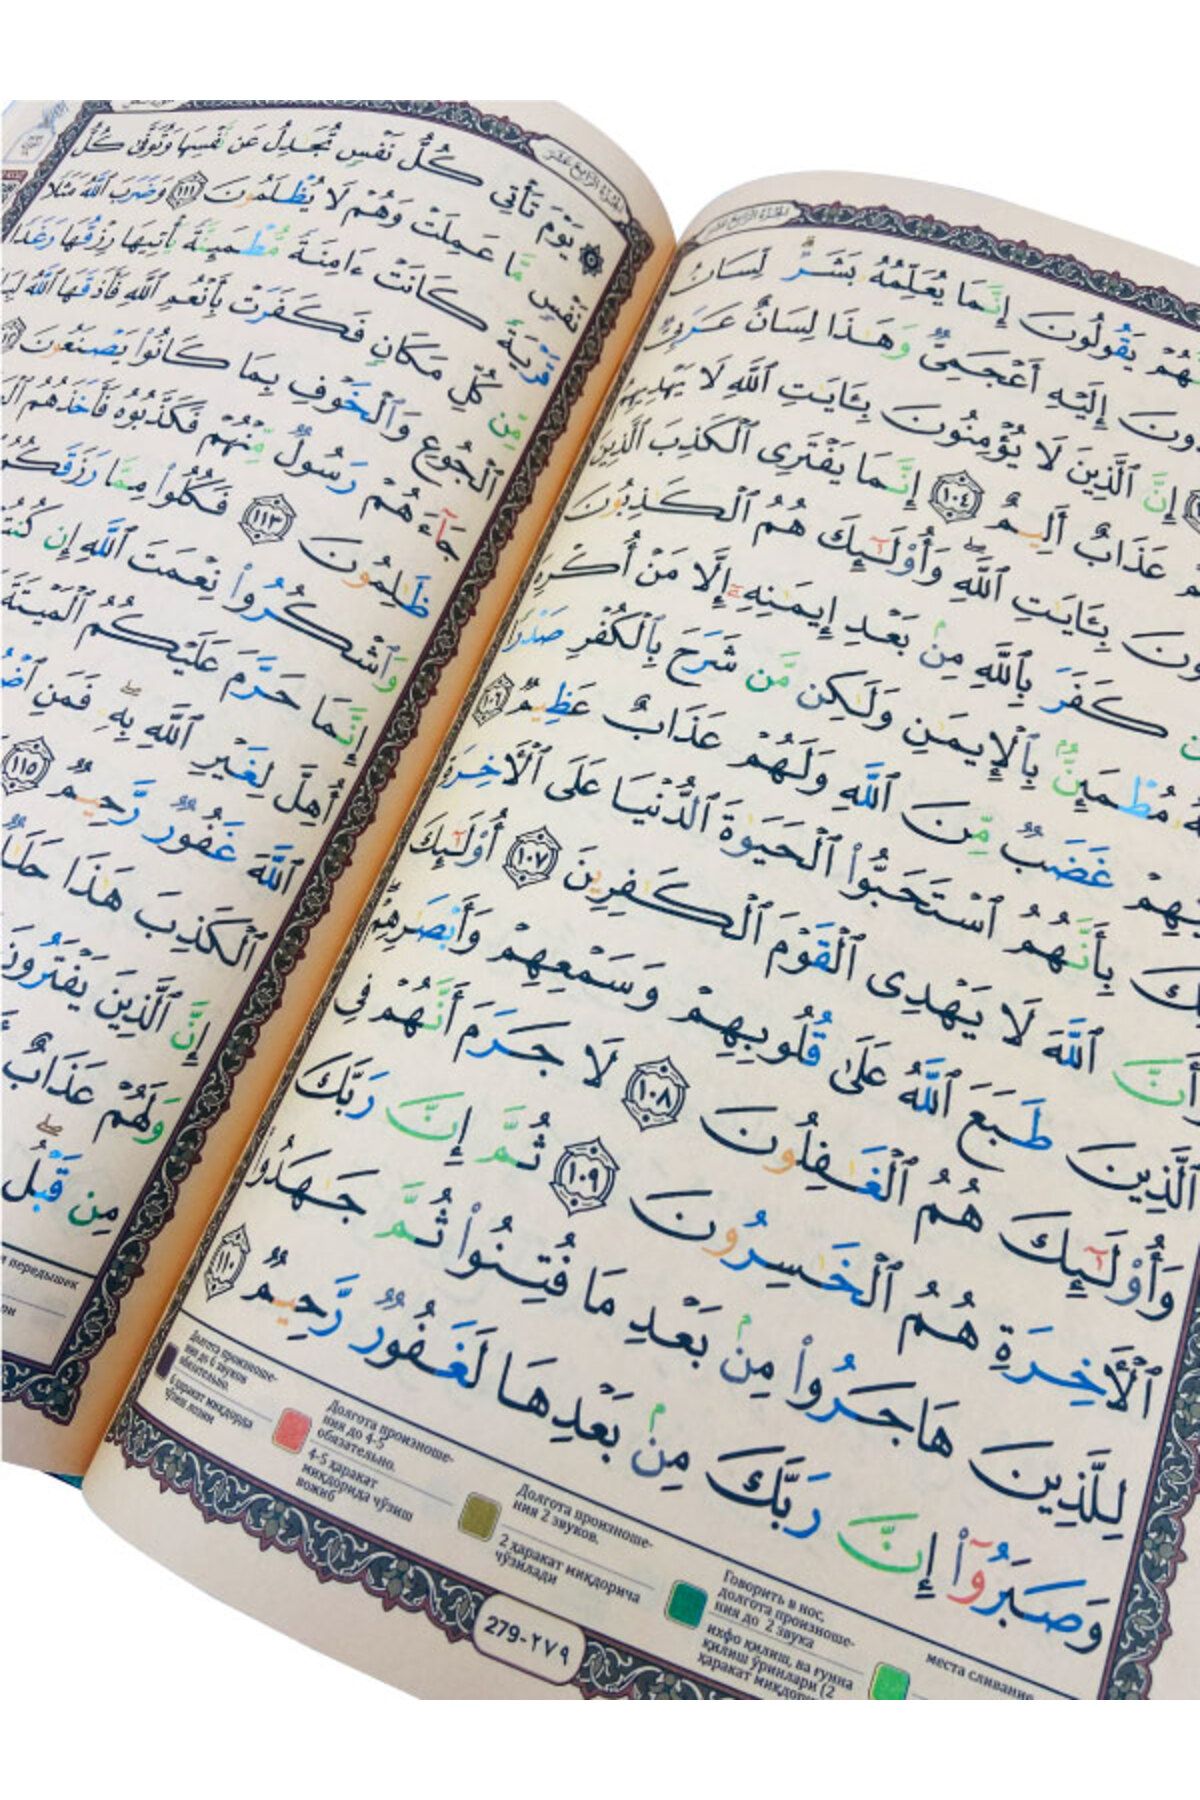 الجزء الرابع عشر
يَقُولُونَ إِنَّمَا يُعَلِّمُهُۥ بَشَرٌ لِّسَانُ
إِلَيْهِ أَعْجَمِىٌّ وَهَٰذَا لِسَانٌ عَرَبِىٌّ
إِنَّ ٱلَّذِينَ لَا يُؤْمِنُونَ بِـَٔايَٰتِ ٱللَّهِ لَا يَهْدِيهِمُ
عَذَابٌ أَلِيمٌ ١٠٤ إِنَّمَا يَفْتَرِى ٱلْكَذِبَ ٱلَّذِينَ
بِـَٔايَٰتِ ٱللَّهِ ۖ وَأُو۟لَٰٓئِكَ هُمُ ٱلْكَٰذِبُونَ
كَفَرَ بِٱللَّهِ مِنۢ بَعْدِ إِيمَٰنِهِۦٓ إِلَّا مَنْ أُكْرِهَ
مُطْمَئِنٌّۢ بِٱلْإِيمَٰنِ وَلَٰكِن مَّن شَرَحَ بِٱلْكُفْرِ صَدْرًا
غَضَبٌ مِّنَ ٱللَّهِ وَلَهُمْ عَذَابٌ عَظِيمٌ ١٠٦
بِأَنَّهُمُ ٱسْتَحَبُّوا۟ ٱلْحَيَوٰةَ ٱلدُّنْيَا عَلَى ٱلْـَٔاخِرَةِ
وَأَنَّ ٱللَّهَ لَا يَهْدِى ٱلْقَوْمَ ٱلْكَٰفِرِينَ ١٠٧ أُو۟لَٰٓئِكَ
ٱلَّذِينَ طَبَعَ ٱللَّهُ عَلَىٰ قُلُوبِهِمْ وَسَمْعِهِمْ وَأَبْصَٰرِهِمْ
وَأُو۟لَٰٓئِكَ هُمُ ٱلْغَٰفِلُونَ ١٠٨ لَا جَرَمَ أَنَّهُمْ فِى
ٱلْـَٔاخِرَةِ هُمُ ٱلْخَٰسِرُونَ ١٠٩ ثُمَّ إِنَّ رَبَّكَ
لِلَّذِينَ هَاجَرُوا۟ مِنۢ بَعْدِ مَا فُتِنُوا۟ ثُمَّ جَٰهَدُوا۟
وَصَبَرُوٓا۟ إِنَّ رَبَّكَ مِنۢ بَعْدِهَا لَغَفُورٌ رَّحِيمٌ ١١٠
Долгота произноше-
ния до 6 звуков
обязательно.
6 ҳаракат миқдорда
чўзиш лозим
Долгота произноше-
ния до 4-5
обязательно.
4-5 ҳаракат
миқдорида чўзиш
вожиб
Долгота произноше-
ния 2 звуков.
2 ҳаракат миқдорича
чўзилади
Говорить в нос,
долгота произноше-
ния до 2 звука
ихфо қилиш, ва ғунна
қилиш ўринлари (2
ҳаракат миқдор
места сливание
279-٢٧٩
الجزء الرابع عشر
۞ يَوْمَ تَأْتِى كُلُّ نَفْسٍ تُجَٰدِلُ عَن نَّفْسِهَا وَتُوَفَّىٰ كُلُّ
نَفْسٍ مَّا عَمِلَتْ وَهُمْ لَا يُظْلَمُونَ ١١١ وَضَرَبَ ٱللَّهُ مَثَلًا
قَرْيَةً كَانَتْ ءَامِنَةً مُّطْمَئِنَّةً يَأْتِيهَا رِزْقُهَا رَغَدًا
مِّن كُلِّ مَكَانٍ فَكَفَرَتْ بِأَنْعُمِ ٱللَّهِ فَأَذَٰقَهَا ٱللَّهُ
ٱلْجُوعِ وَٱلْخَوْفِ بِمَا كَانُوا۟ يَصْنَعُونَ
جَآءَهُمْ رَسُولٌ مِّنْهُمْ فَكَذَّبُوهُ فَأَخَذَهُمُ
ظَٰلِمُونَ ١١٣ فَكُلُوا۟ مِمَّا رَزَقَكُمُ
وَٱشْكُرُوا۟ نِعْمَتَ ٱللَّهِ إِن
إِنَّمَا حَرَّمَ عَلَيْكُمُ ٱلْمَيْتَةَ
أُهِلَّ لِغَيْرِ ٱللَّهِ بِهِۦ ۖ فَمَنِ
ٱللَّهَ غَفُورٌ رَّحِيمٌ ١١٥
ٱلْكَذِبَ هَٰذَا
إِنَّ ٱلَّذِينَ يَفْتَرُونَ
وَلَهُمْ عَذَابٌ
مِن قَبْلُ ۖ
передышек